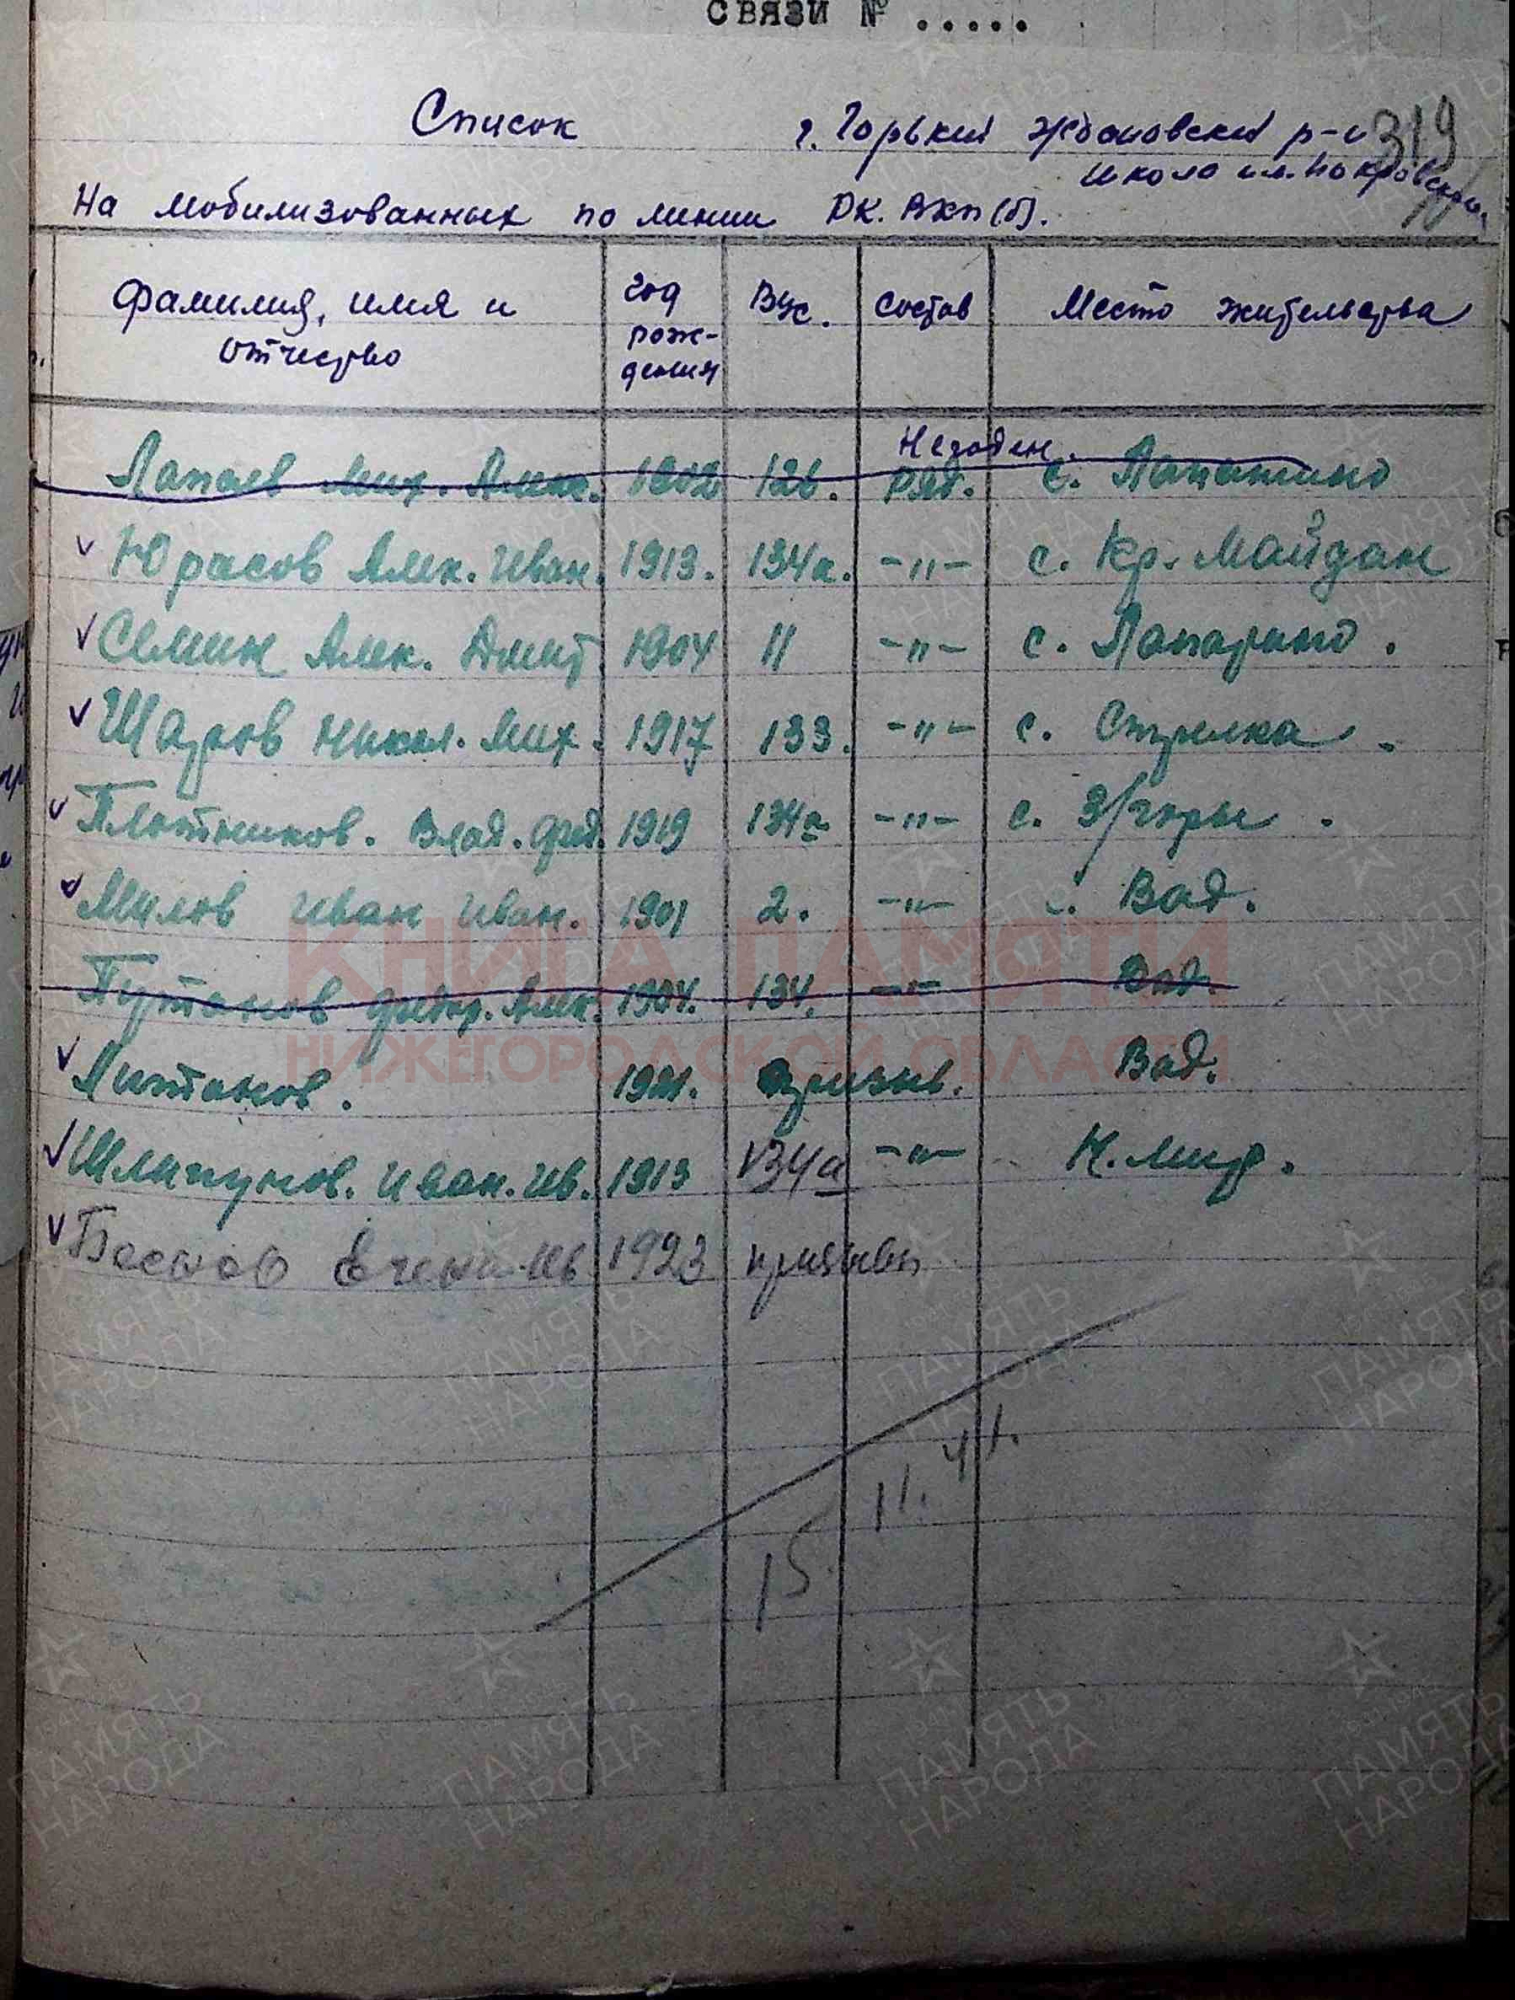 СВЯЗИ № .....
319
Список г. Горький Ждановский р-н
школа им. Покровского
На мобилизованных по линии РК. ВКП(б).
Фамилия, имя и отчество год рождения Вус. состав Место жительства
Негоден.
Лапаев Мих. Алек. 1902 126. ряд. с. Лопатино
Юрасов Алек. Иван. 1913. 134а. -"- с. Кр. Майдан
Семин Алек. Дмит. 1904 11 -"- с. Лопатино.
Шаров Никол. Мих. 1917 133. -"- с. Стрелка.
Плотников. Влад. Фед. 1919 134а -"- с. З/горы.
Милов Иван Иван. 1901 2. -"- с. Вад.
Путанов Федор. Алек. 1904. 134. -"- Вад.
Литанов. 1921. призыв. Вад.
Шляпугов. Иван. Ив. 1913 134а -"- Н. Мир.
Ив 1923 призывн
15. 11. 41.
КНИГА ПАМЯТИ
НИЖЕГОРОДСКОЙ ОБЛАСТИ
ПАМЯТЬ НАРОДА